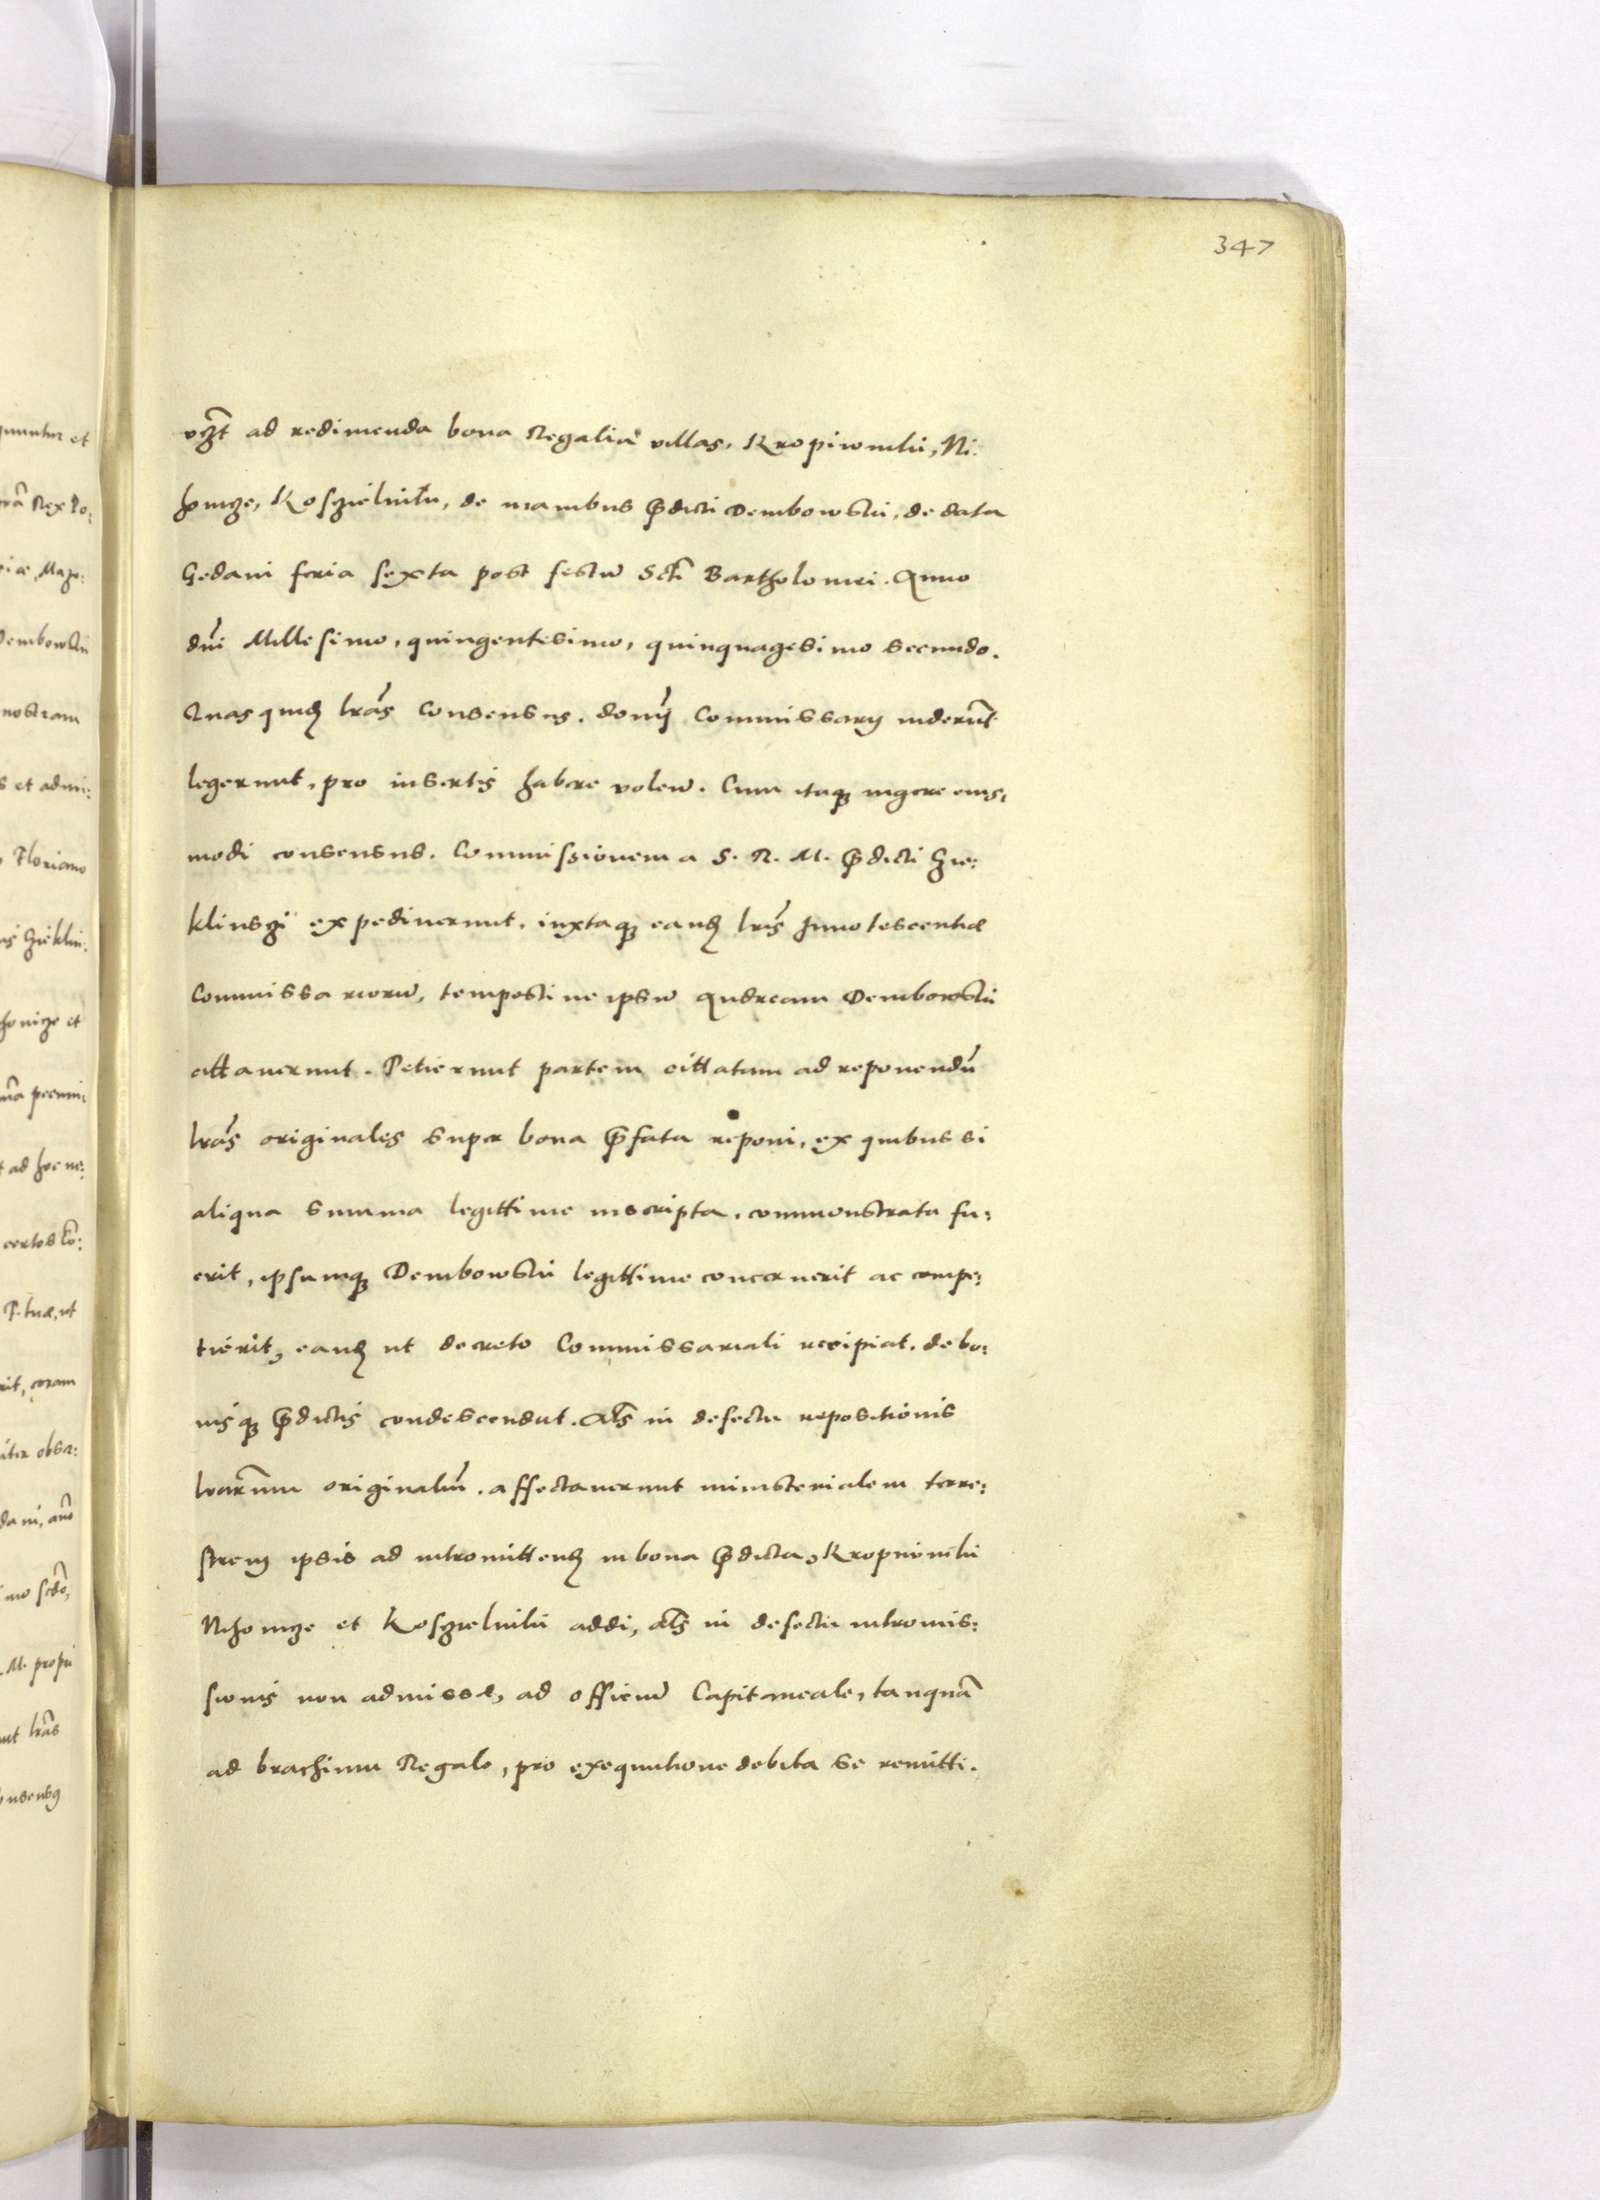 347
vꝫt ad redimenda bona Regalia villas, Kropiwniki, Ni:
honicze, Kosczielniki, de manibus p̄dicti Dembowskij, de data
Gedani feria sexta post festū Scti Bartholomei. Anno
dn̄i Millesimo, quingentesimo, quinquagesimo secundo.
Quasquidꝫ lrās consensus. domij Commissarij viderūt
legerunt, pro insertis habere volew̄. Cum itaqꝫ vigore eius:
modi consensus. Commissionem a S. R. M. p̄dicti Gie:
klinsczi expediverunt. iuxtaqꝫ eandꝫ lrīs Innotescentiæ
Commissariorū, tempestive ipsū Andream Dembowskij
cittaverunt. Petierunt partem cittatam ad reponendū
lrās originales super bona p̄fata reponi, ex quibus si
aliqua summa legittime inscripta, commonstrata fu:
erit, ipsumqꝫ Dembowskij legittime concernerit ac compe:
tierit, eandꝫ ut decreto Commissariali recipiat. de bo:
nisqꝫ p̄dictis condescendat. Als̄ in defectu repositionis
lrarūm originaliū. affectaverunt ministerialem terre:
strem ipsis ad intromittendꝫ in bona p̄dicta, Kropiwniki
Nihonicze et Kosczielniki addi, als̄ in defectu intromis:
sionis non admissæ, ad officiū Capitaneale, tanquā
ad brachium Regale, pro exequutione debita se remitti.